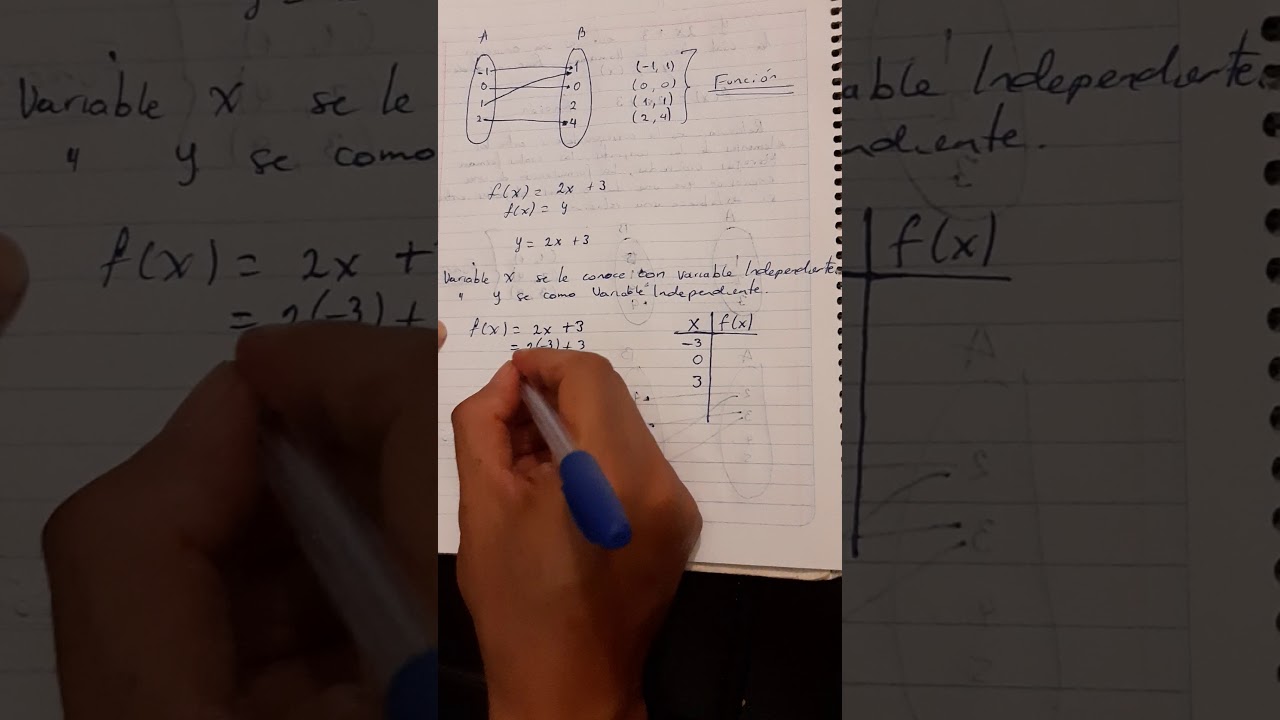 A B
-1 1 (-1, 1)
0 0 (0, 0) Función
1 2 (1, 1)
2 4 (2, 4)
f(x) = 2x + 3
f(x) = y
y = 2x + 3
Variable X se le conoce con variable Independiente.
" y se como Variable Independiente.
f(x) = 2x + 3
= 2(-3) + 3
x f(x)
-3
0
3